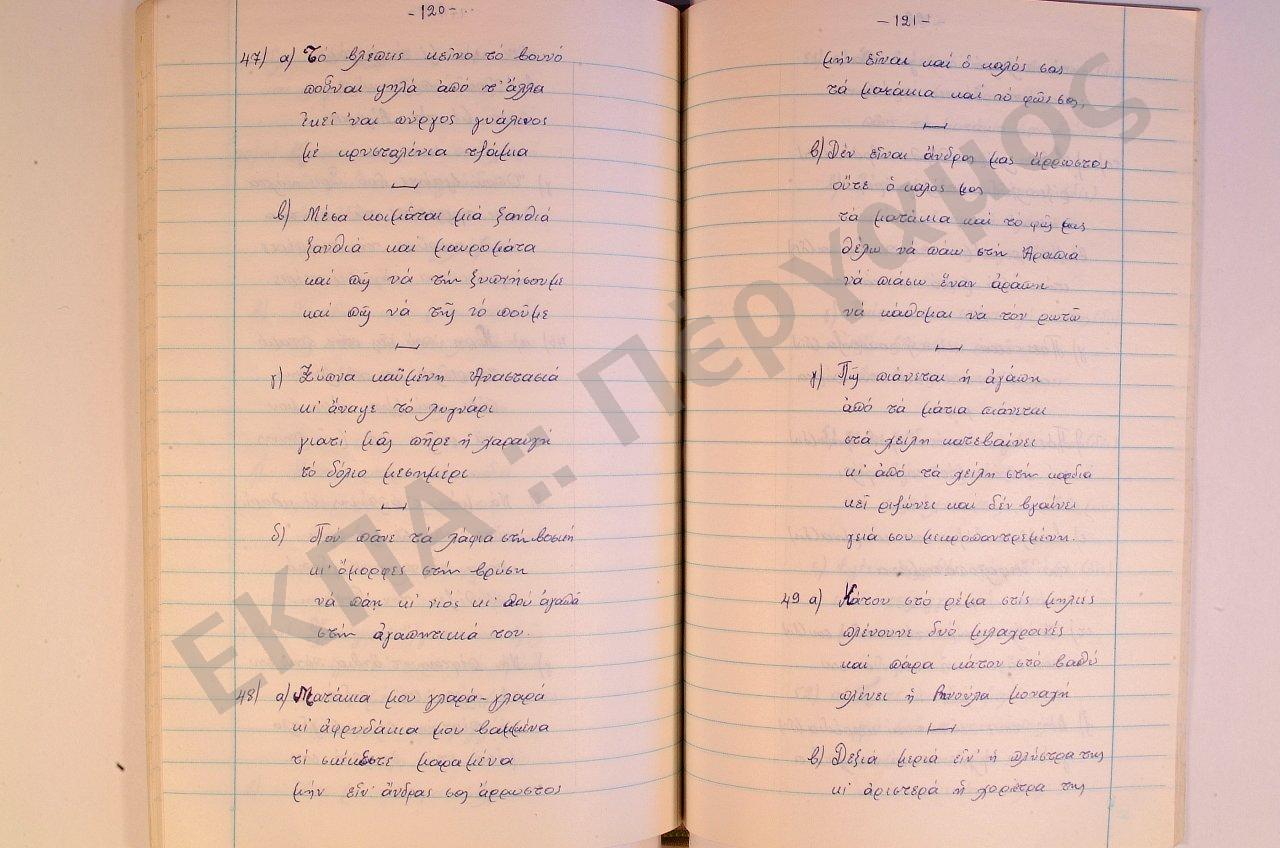 -120-
47) α) Τό βλέπεις κεῖνο τό βουνό
ποὖναι ψηλά ἀπό τ' ἄλλα
ἐκεῖ 'ναι πύργος γυάλινος
μέ κρυσταλένια τζάμια
β) Μέσα κοιμᾶται μιά ξανθιά
ξανθιά καί μαυρομάτα
καί πῶς νά τήν ξυπνήσουμε
καί πῶς νά τῆς τό ποῦμε
γ) Ξύπνα καϋμένη Ἀναστασιά
κι' ἄναψε τό λυχνάρι
γιατί μᾶς πῆρε ἡ χαραυγή
τό δόλιο μεσημέρι
δ) Πού πᾶνε τά λάφια στήν βοσκή
κι' ὄμορφες στήν βρύση
νά πάη κι' νιός κι' πού ἀγαπᾶ
στήν ἀγαπητικιά του.
48) α) Ματάκια μου γλαρά-γλαρά
κι' ἀφρυδάκια μου βαμμένα
τί στέκεστε μαραμένα
μήν εἶν' ἄνδρας σας ἄρρωστος
-121-
μήν εἶναι καί ὁ καλός σας
τά ματάκια καί τό φῶς σας.
β) Δέν εἶναι ἄνδρας μας ἄρρωστος
οὔτε ὁ καλός μας
τά ματάκια καί τό φῶς μας
θέλω νά πάω στήν Ἀραπιά
νά πιάσω ἕναν ἀράπη
νά κάθομαι νά τόν ρωτῶ
γ) Πῶς πιάνεται ἡ ἀγάπη
ἀπό τά μάτια πιάνεται
στά χείλη κατεβαίνει
κι' ἀπό τά χείλη στήν καρδιά
κεῖ ριζώνει καί δέν βγαίνει
γειά σου μικροπαντρεμένη.
49 α) Κάτου στό ρέμα στίς μηλιές
πλένουνε δυό μελαχρινές
καί πάρα κάτου στό βαθύ
πλένει ἡ Ρηνούλα μοναχή
β) Δεξιά μεριά εἶν' ἡ πλύστρα της
κι' ἀριστερά ἡ χορίστρα της
ΕΚΠΑ :: Πέργαμος